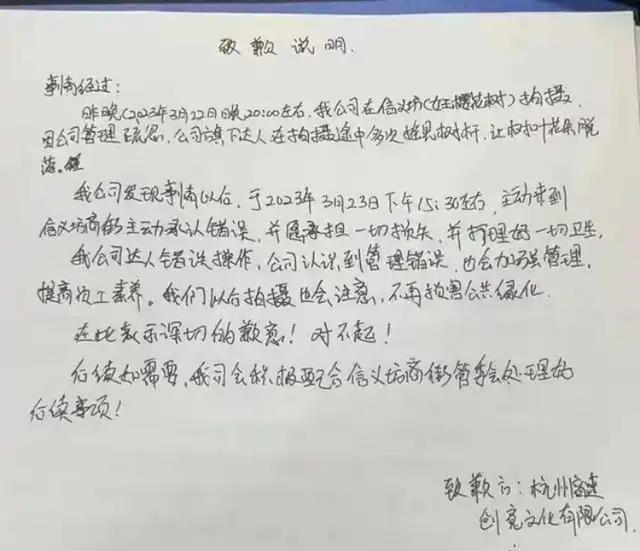 致歉说明.
事情经过:
昨晚(2023年3月22日晚20:00左右,我公司在信义坊(女王樱花树)拍摄,
因公司管理疏忽,公司旗下达人在拍摄途中多次摇晃树杆,让树叶花朵脱
落。
我公司发现事情以后,于2023年3月23日下午15:30左右,主动来到
信义坊商街主动承认错误,并愿承担一切损失,并打理好一切卫生,
我公司达人错误操作,公司认识到管理错误,也会加强管理,
提高员工素养。我们以后拍摄也会注意,不再损害公共绿化.
在此表示深切的歉意!对不起!
后续如需要,我司会积极配合信义坊商街管委会处理好
后续事项!
致歉方:杭州
创亮文化有限公司.